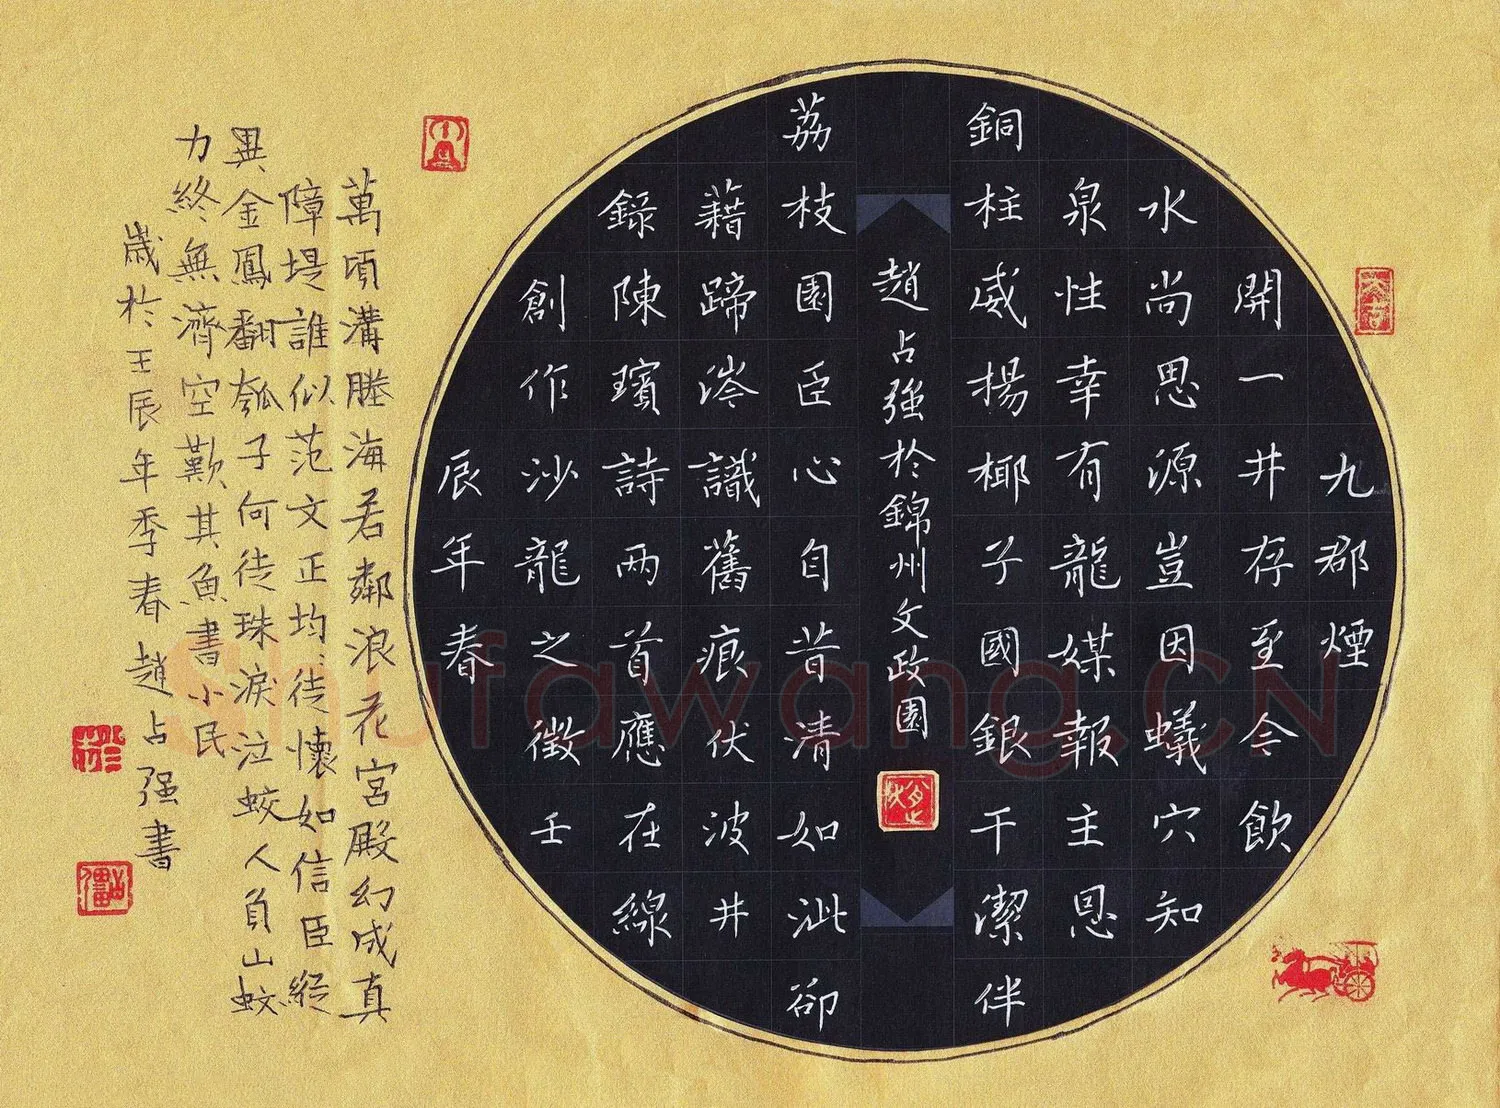 九郡煙
開一井存至今飲
水尚思源豈因蟻穴知
泉性幸有龍媒報主恩
銅柱威揚椰子國銀干潔伴
趙占強於錦州文政園
荔枝園臣心自昔清如泚卻
藉蹄涔識舊痕伏波井
錄陳璸詩兩首應在線
創作沙龍之徵壬
辰年春
萬頃溝塍海若鄰浪花宮殿幻成真
障堤誰似范文正均徒懷如信臣終
異金鳳翻瓠子何徒珠淚泣蛟人負山蚊
力終無濟空歎其魚書小民
歲於壬辰年季春趙占强書
Shufawang.CN